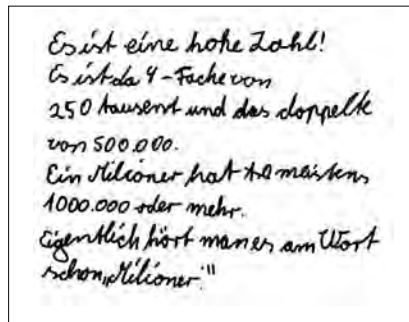 Es ist eine hohe Zahl!
Es ist da 4-Fache von
250 tausent und das doppelte
von 500.000.
Ein Milioner hat meistens
1000.000 oder mehr.
Eigentlich hört man es am Wort
schon „Milioner."